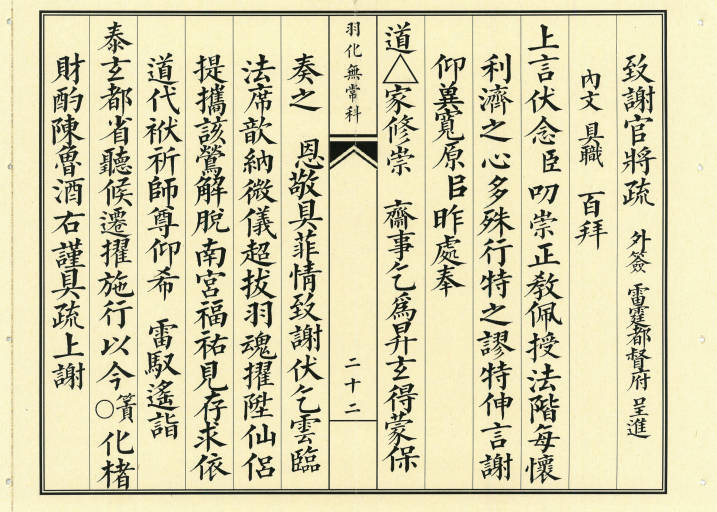 致謝官將疏　外簽　雷霆都督府　呈進
內文　具職　百拜
上言伏念臣叨崇正教佩授法階每懷
利濟之心多殊行特之謬特伸言謝
仰冀寬原臣昨處奉
道△家修崇　齋事乞為昇玄得蒙保
羽化無常科
二十二
奏之　恩敬具菲情致謝伏乞雲臨
法席歆納微儀超拔羽魂擢陞仙侶
提攜該鶯解脫南宮福祐見存求依
道代袱祈師尊仰希　雷馭遙詣
泰玄都省聽候遷擢施行以今○簣化楮
財酌陳魯酒右謹具疏上謝